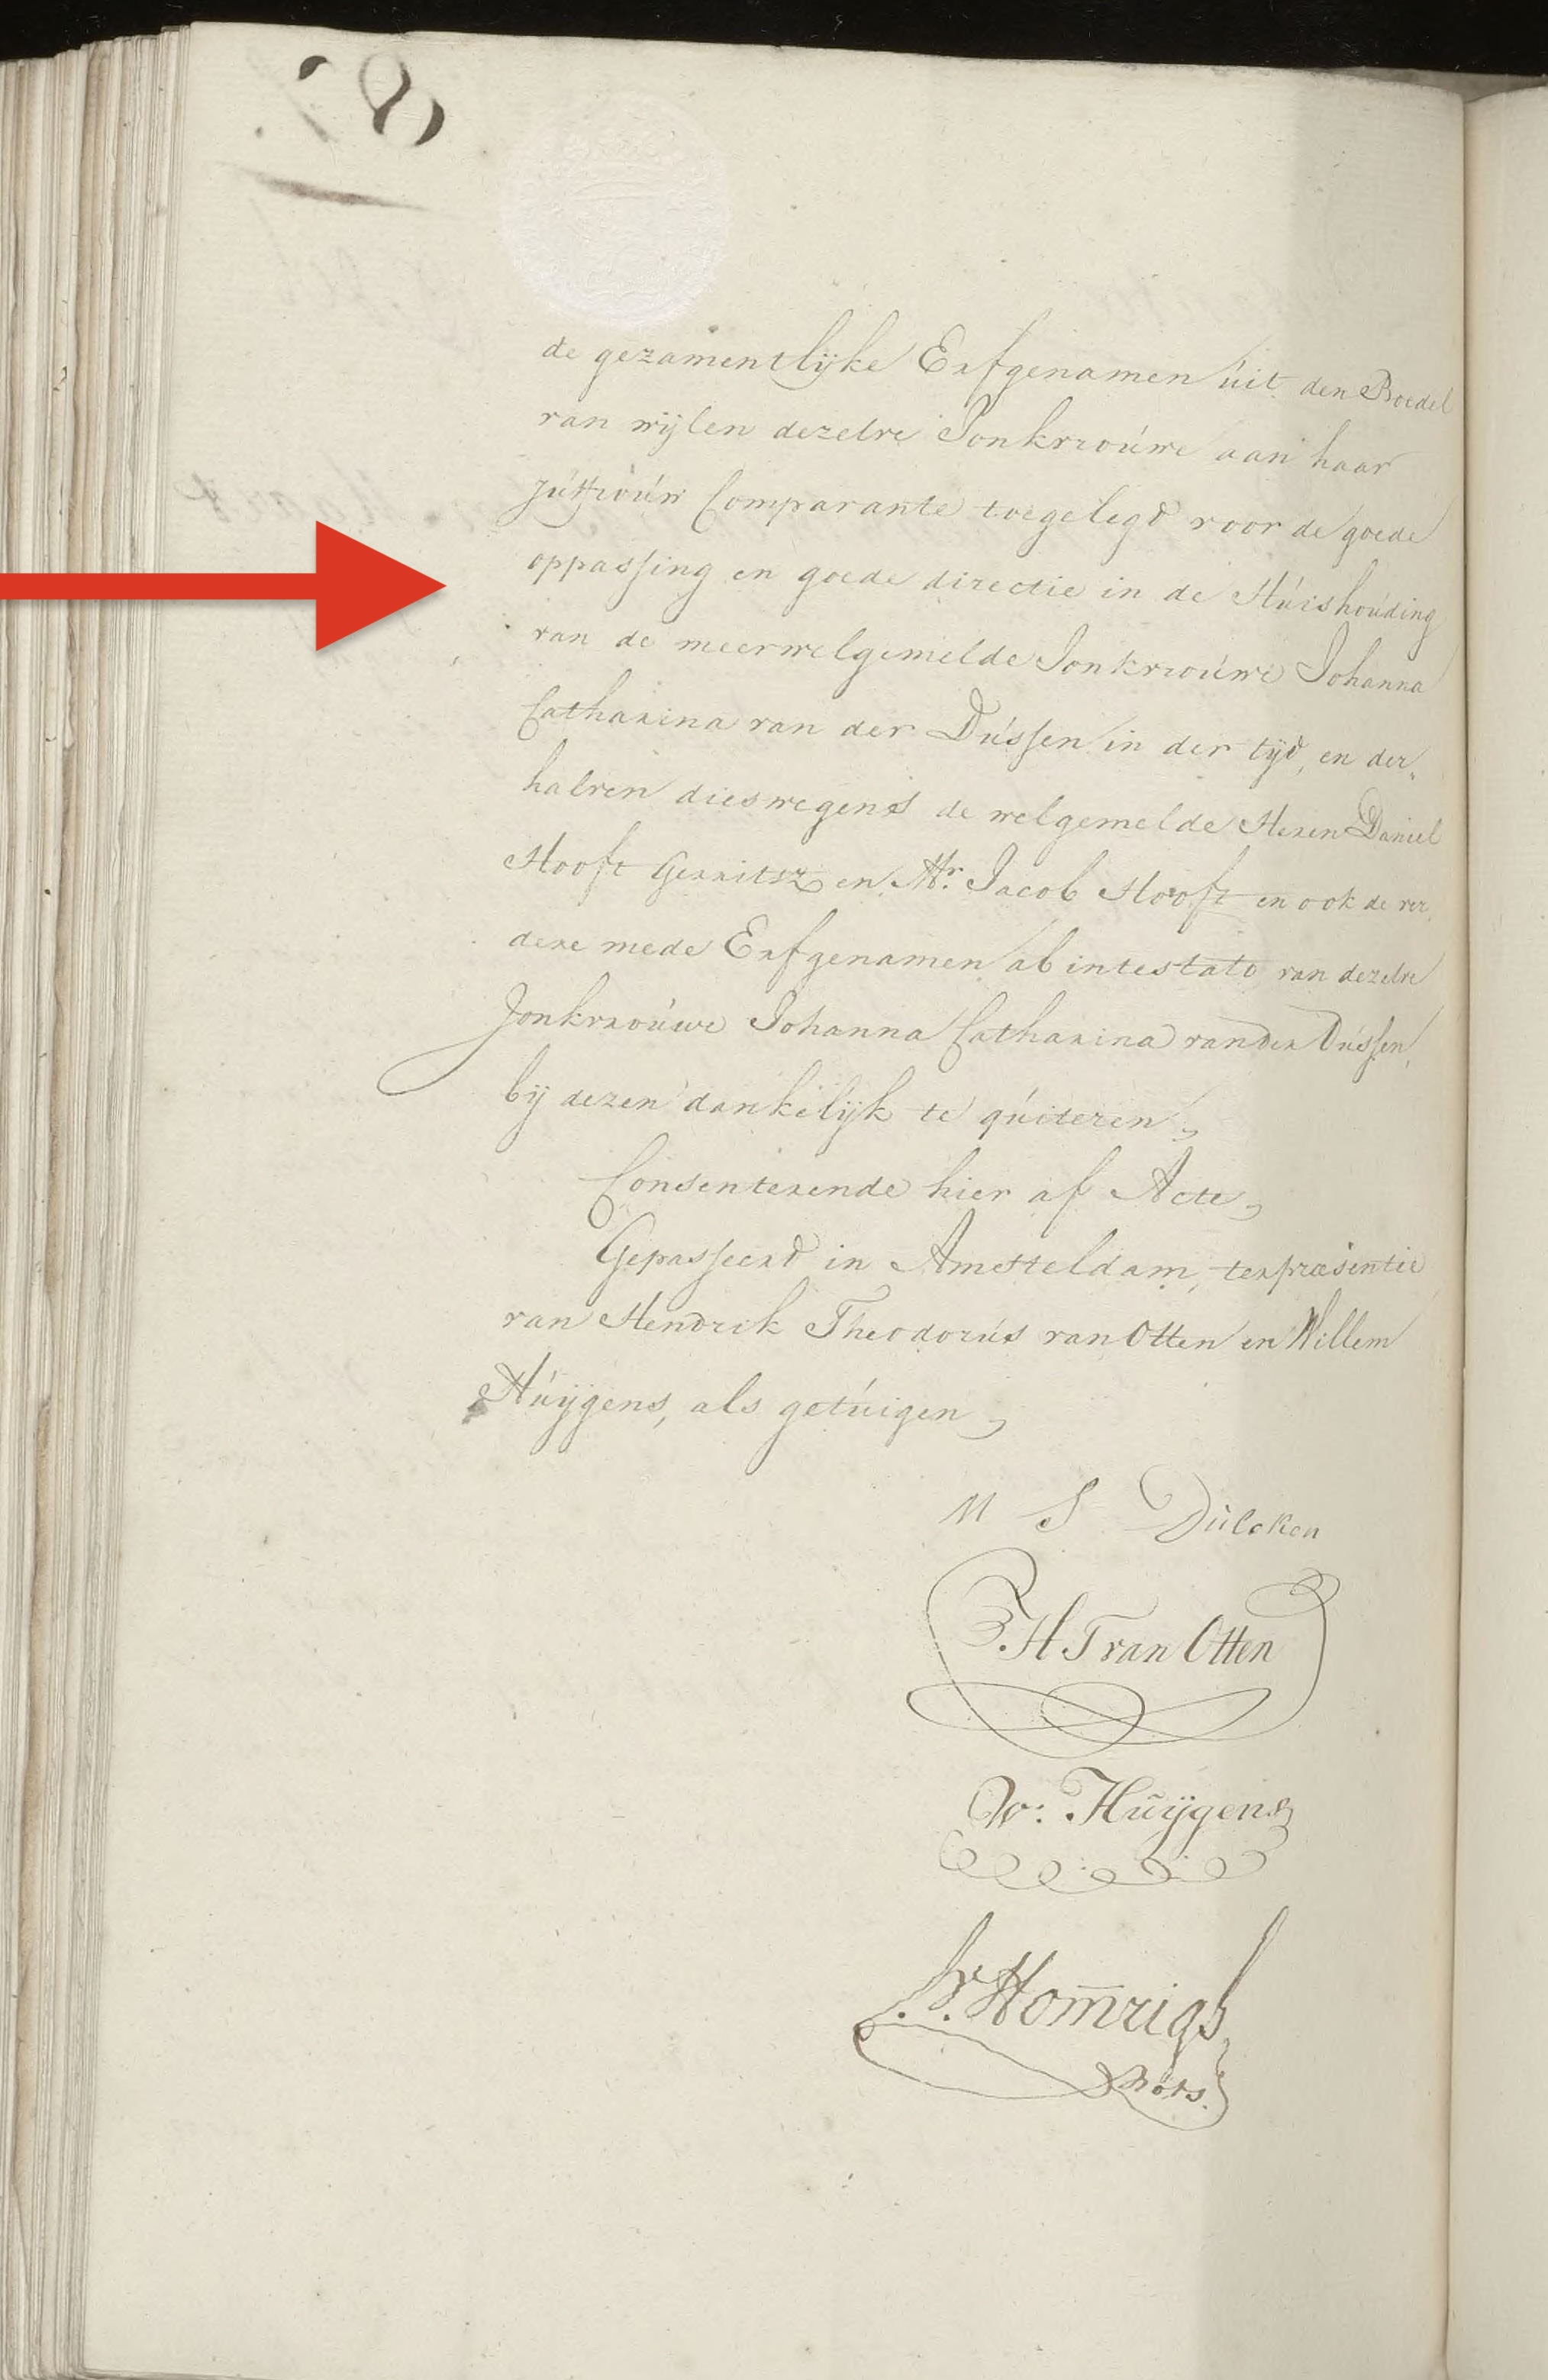 de gezamentlijke Erfgenamen uit den Boedel
van wijlen dezelve Jonkvrouwe aan haar
Juffrouw Comparante toegelegd voor de goede
oppassing en goede directie in de Huishouding
van de meerwelgemelde Jonkvrouwe Johanna
Catharina van der Dussen in der tijd, en der„
halven dieswegens de welgemelde Heren Daniel
Hooft Gerritsz en Mr. Jacob Hooft en ook de ver„
dere mede Erfgenamen ab intestato van dezelve
Jonkvrouwe Johanna Catharina van der Dussen,
bij dezen dankelijk te quiteren,
Consenterende hier af Acte,
Gepasseerd in Amsteldam, ter præsentie
van Hendrik Theodorus van Otten en Willem
Huijgens, als getuigen,
M S Dulcken
H T van Otten
W: Huijgens
Homrigh
Nots.